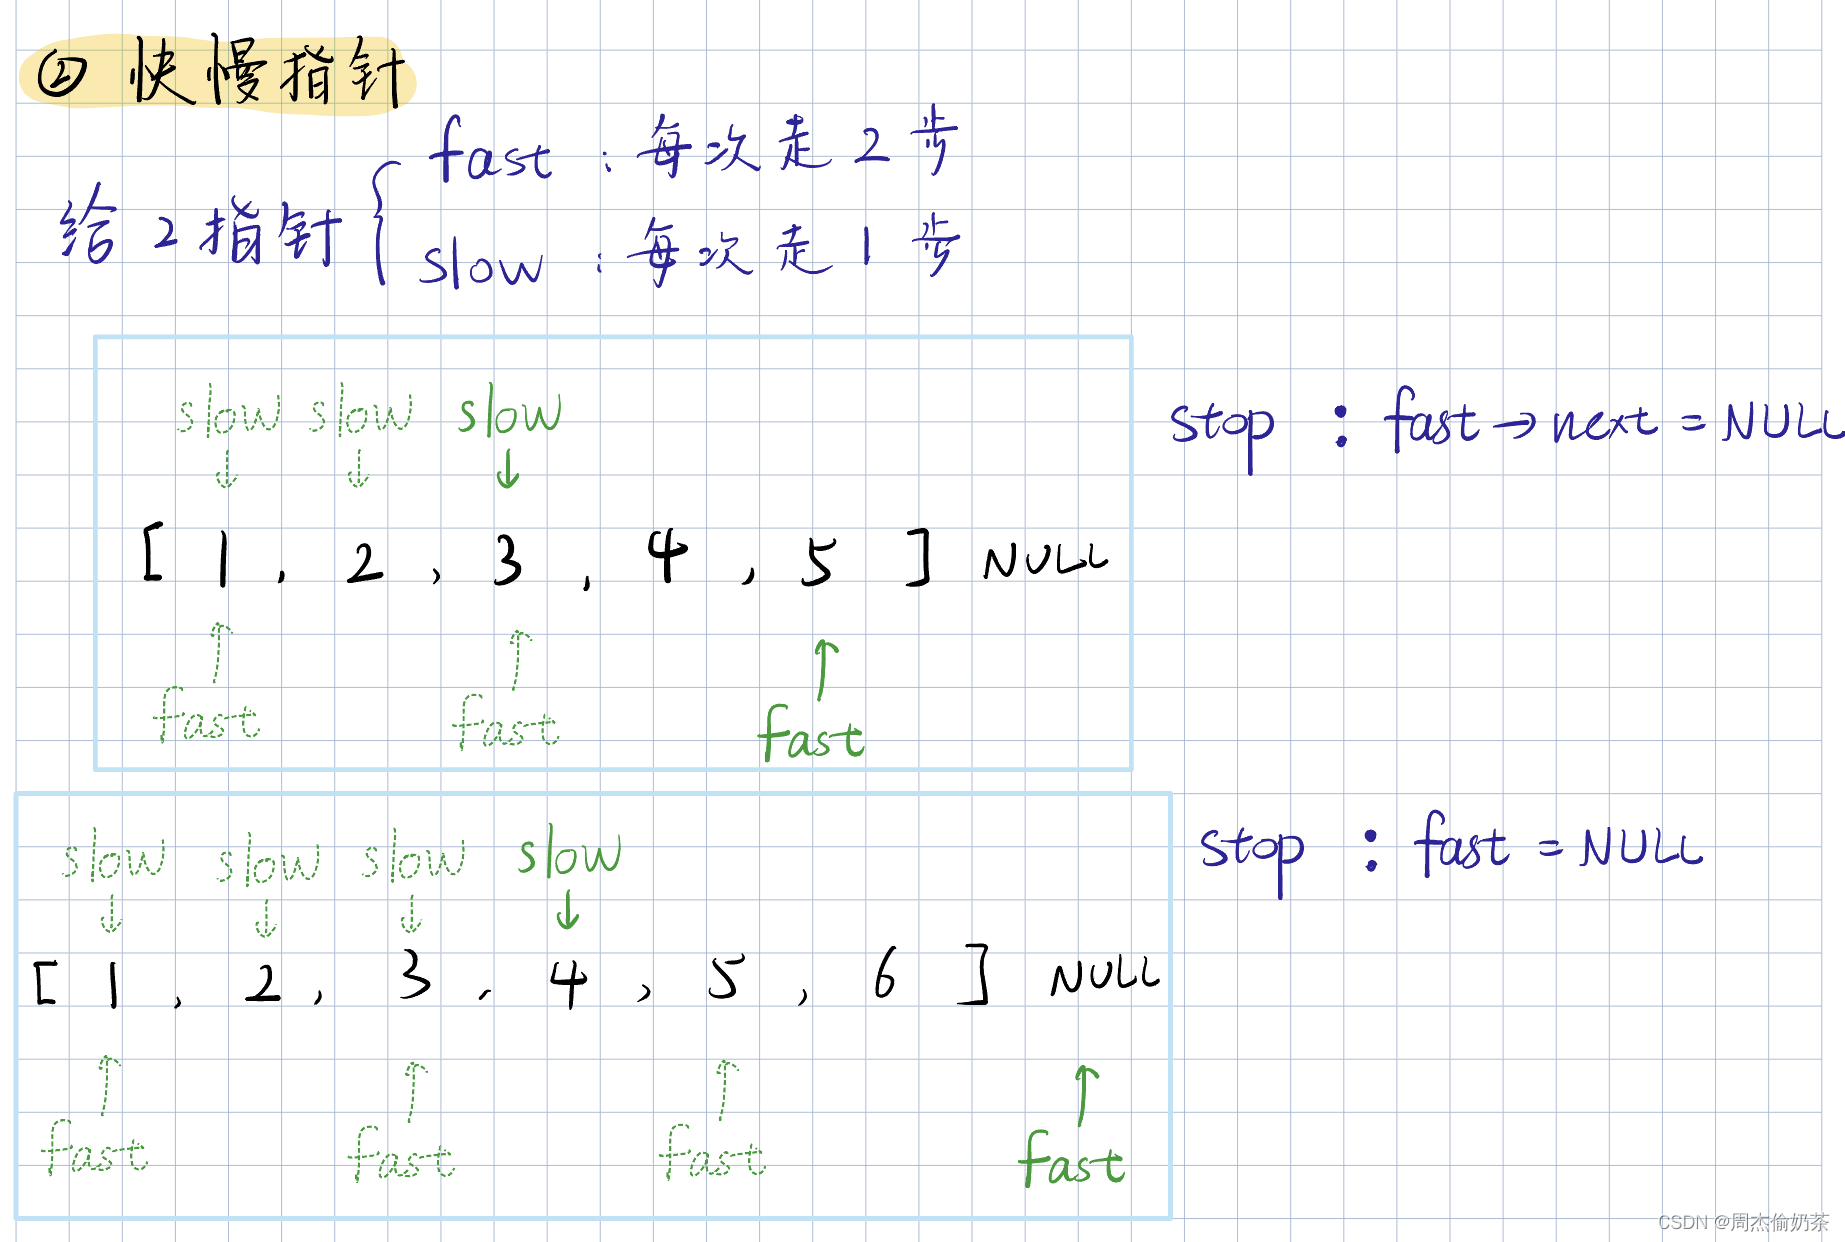 ② 快慢指针
给 2 指针 { fast : 每次走 2 步
slow : 每次走 1 步
slow slow slow
stop : fast → next = NULL
[ 1 , 2 , 3 , 4 , 5 ] NULL
fast fast fast
slow slow slow slow
stop : fast = NULL
[ 1 , 2 , 3 , 4 , 5 , 6 ] NULL
fast fast fast fast
CSDN @周杰偷奶茶